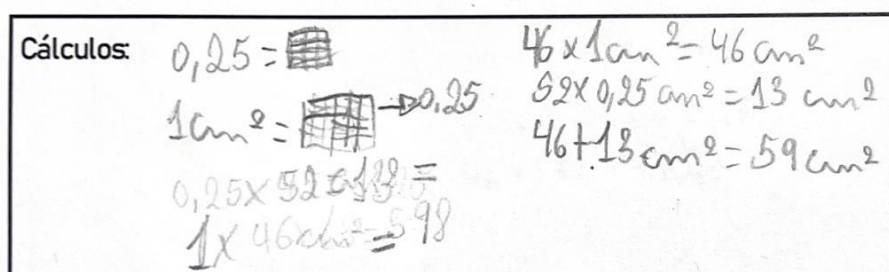 Cálculos:
0,25 =
1cm² = → 0,25
0,25 x 52 =
1 x 46 cm² = 598
46 x 1cm² = 46 cm²
52 x 0,25 cm² = 13 cm²
46 + 13 cm² = 59 cm²